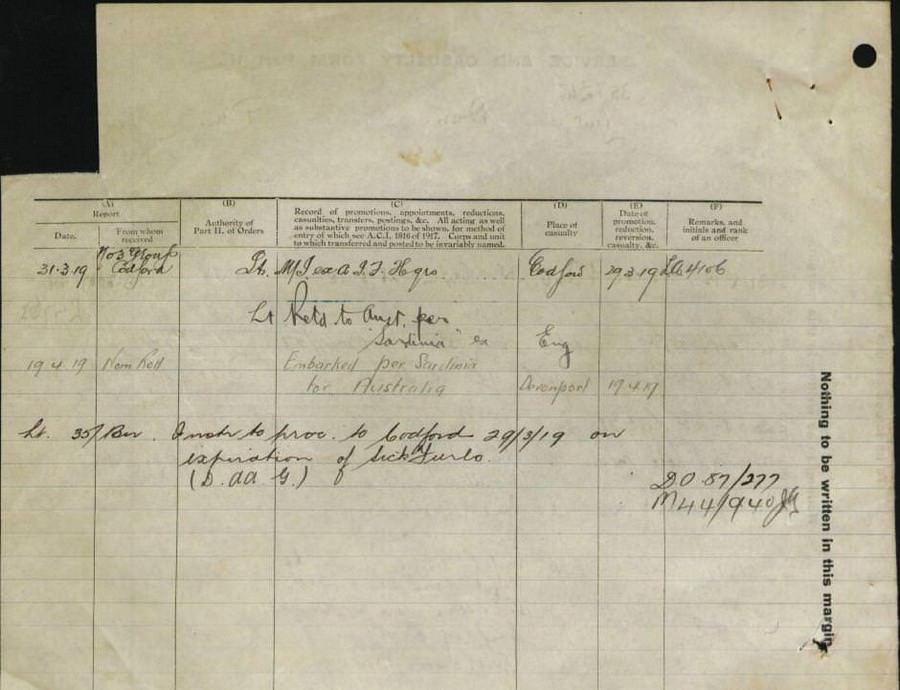 (A)
Report
Date.
From whom
received
(B)
Authority of
Part II. of Orders
(C)
Record of promotions, appointments, reductions,
casualties, transfers, postings, &c. All acting as well
as substantive promotions to be shown, for method of
entry of which see A.C.I. 1816 of 1917. Corps and unit
to which transferred and posted to be invariably named.
(D)
Place of
casualty
(E)
Date of
promotion,
reduction,
reversion,
casualty, &c.
(F)
Remarks, and
initials and rank
of an officer
31.3.19 No 3 Group Codford Lt. M/I ex A.I.F. Hqrs Codford 29.3.19 4106
Lt Retd to Aust. per
"Sardinia" ex Eng
19.4.19 Nom Roll Embarked per Sardinia
for Australia Devonport 19.4.19
Lt. 35/Bn. Instr to proc. to Codford 29/3/19 on
expiration of Sick Furlo.
(D.AA.G.)
DO 87/277
M44/940
Nothing to be written in this margin